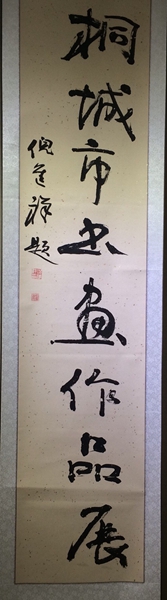 桐城市书画作品展
倪进祥题